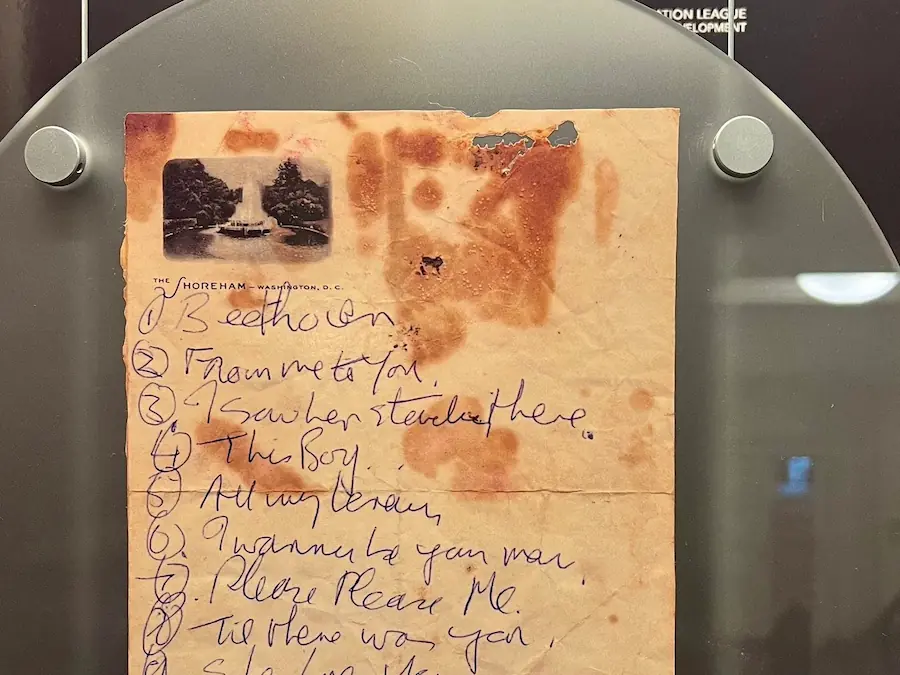 TION LEAGUE
ELOPMENT
THE SHOREHAM – WASHINGTON, D. C.
① Beethoven
② From me to You.
③ I Saw her standing there.
④ This Boy.
⑤ All my
⑥ I wanna be your man.
⑦. Please Please Me.
⑧ Till there was you.